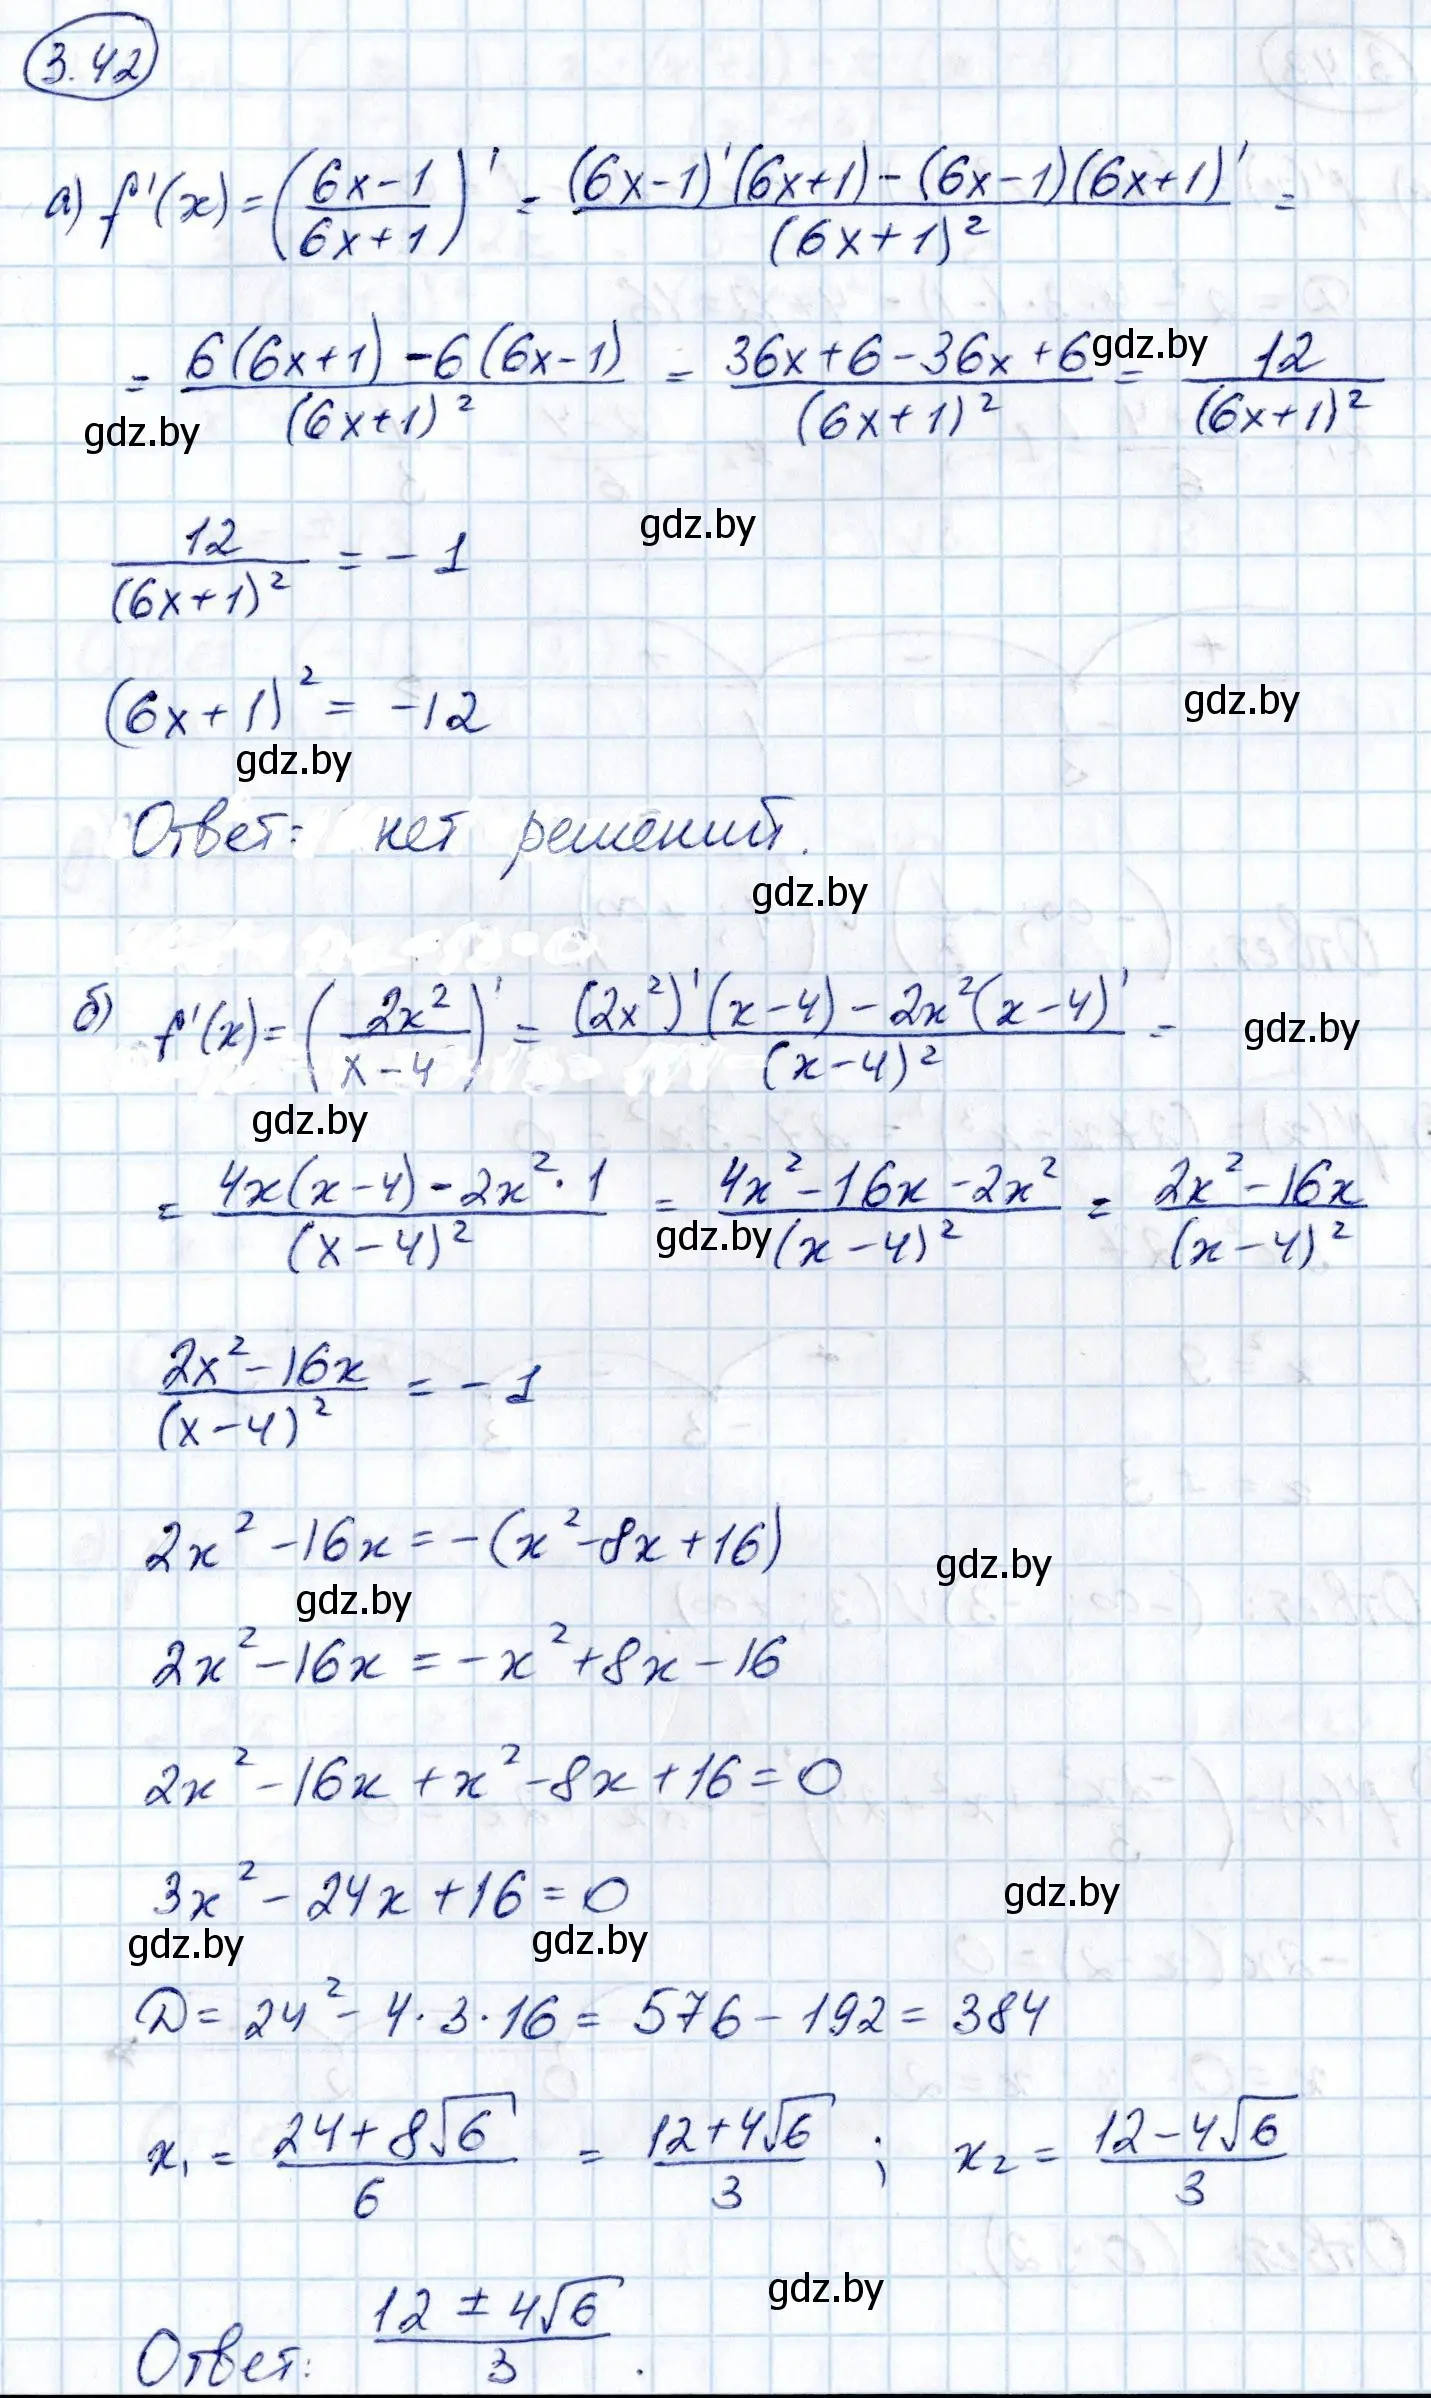 3.42
а) f'(x) = ((6x-1)/(6x+1))' = ((6x-1)'(6x+1) - (6x-1)(6x+1)')/(6x+1)² =
= (6(6x+1) - 6(6x-1))/(6x+1)² = (36x+6-36x+6)/(6x+1)² = 12/(6x+1)²
gdz.by
gdz.by
12/(6x+1)² = -1
gdz.by
(6x+1)² = -12
gdz.by
gdz.by
Ответ: нет решений.
gdz.by
б) f'(x) = (2x²/(x-4))' = ((2x²)'(x-4) - 2x²(x-4)')/(x-4)² =
gdz.by
gdz.by
= (4x(x-4) - 2x²·1)/(x-4)² = (4x²-16x-2x²)/(x-4)² = (2x²-16x)/(x-4)²
gdz.by
(2x²-16x)/(x-4)² = -1
2x² - 16x = -(x²-8x+16)
gdz.by
gdz.by
2x² - 16x = -x² + 8x - 16
2x² - 16x + x² - 8x + 16 = 0
3x² - 24x + 16 = 0
gdz.by
gdz.by
gdz.by
D = 24² - 4·3·16 = 576 - 192 = 384
x₁ = (24+8√6)/6 = (12+4√6)/3 ; x₂ = (12-4√6)/3
gdz.by
Ответ: (12±4√6)/3.